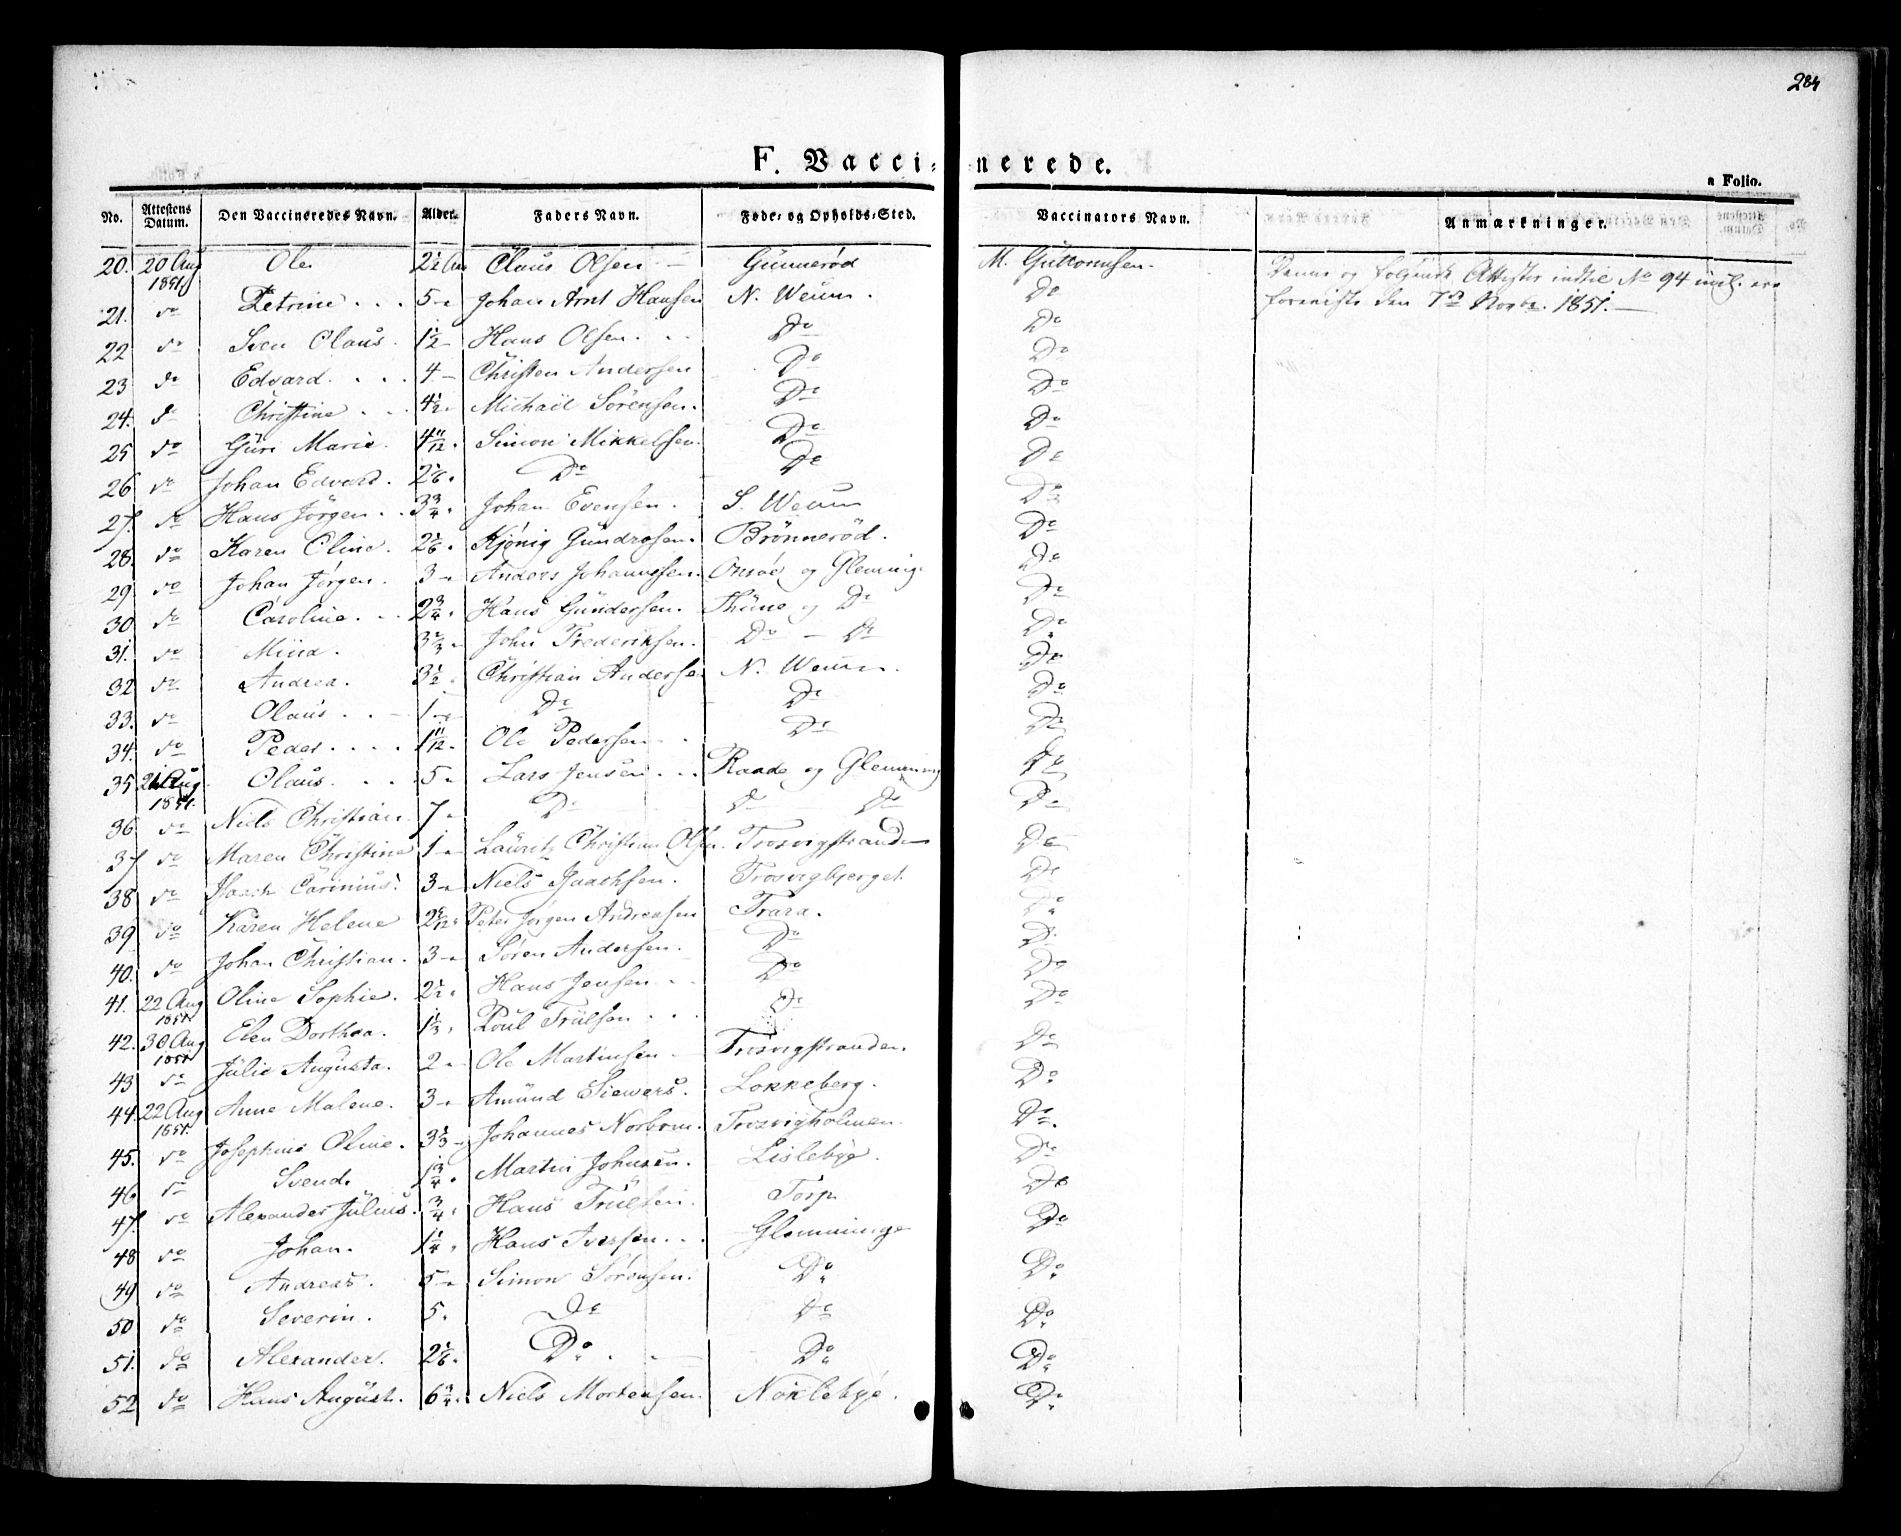 284
F. Vaccinerede.
a Folio.
No. Attestens Datum. Den Vaccineredes Navn. Alder. Faders Navn. Føde- og Opholds-Sted. Vaccinators Navn. Anmærkninger.
20. 20 Aug 1851 Ole 2½ Aar Claus Olsen Gunnerød M. Guttormsen. Denne og følgende Attester indtil No 94 incl. ere
21. do Petrine 5 Johan Arnt Hansen N. Weum. Do foreviste den 7de Novbr. 1851.
22 do Sven Olaus 1½ Hans Olsen. Do Do
23 do Edvard 4 Christen Andersen Do Do
24. do Christine 4½ Michael Sørensen. Do Do
25 do Guri Marie 4 11/12 Simon Mikkelsen. Do Do
26 do Johan Edvard. 2 1/6 Do Do Do
27. do Hans Jørgen 3¾ Johan Evensen. S. Weum Do
28. do Karen Oline 2 1/6 Kjønig Gundrosen. Brønnerød. Do
29 do Johan Jørgen. 3 Anders Johannesen. Onsøe og Glemminge Do
30 do Caroline 2¾ Hans Gundersen. Thune og Do Do
31. do Mina. 3⅔ John Frederiksen. Do — Do Do
32 do Andrea. 3½ Christian Andersen N. Weum. Do
33. do Olaus 1 Do Do Do
34. do Peder 1 11/12 Ole Pedersen Do Do
35 21 Aug 1851. Olaus 5 Lars Jensen Raade og Glemming Do
36 do Niels Christian 7 Do Do Do Do
37 do Maren Christine 1 Lauritz Christian Olsen. Trosvigstranden Do
38 do Carinius. 3 Niels Trosvigbjerget. Do
39 do Karen Helene Peter Jørgen Andreasen Trara. Do
40. do Johan Christian. 3 Søren Andersen. Do Do
41. 22 Aug 1851 Oline Sophie. 2½ Hans Jensen Do Do
42. 30 Aug 1851 Elen Dorthea 1⅓ Poul Trulsen Do Do
43 do Julie Augusta. 2 Ole Martinsen Trosvigstranden. Do
44. 22 Aug 1851. Anne Malene. 3 Amund Siewers. Lokkeberg. Do
45. do Josephine Oline. 3⅓ Johannes Norbom. Trosvigholmen. Do
46 do Svend. 1¾ Martin Johnsen. Lislebye. Do
47. do Alexander Julius. ¾ Hans Trulsen. Torp Do
48 do Johan. 1¼ Hans Iversen Glemminge Do
49 do Andreas. 5 Simon Sørensen. Do Do
50 do Severin. 5 Do Do Do
51. do Alexander. 2 1/6 Do Do Do
52 do Hans August. 6¾ Niels Mortensen. Noklebye. Do